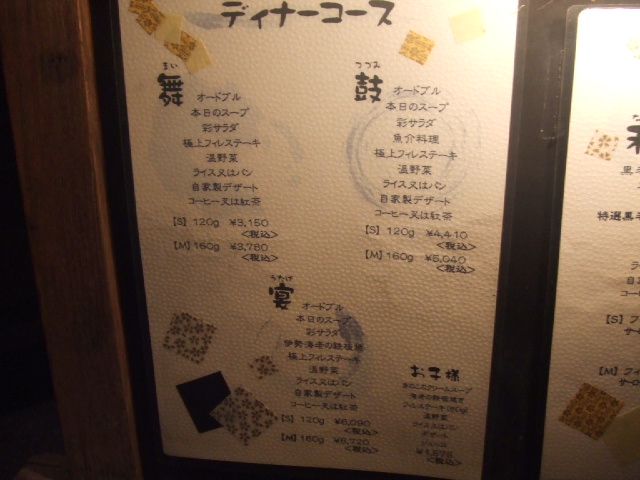 ディナーコース
まい
舞
オードブル
本日のスープ
彩サラダ
極上フィレステーキ
温野菜
ライス又はパン
自家製デザート
コーヒー又は紅茶
【S】 120g ¥3,150
<税込>
【M】 160g ¥3,780
<税込>
つつみ
鼓
オードブル
本日のスープ
彩サラダ
魚介料理
極上フィレステーキ
温野菜
ライス又はパン
自家製デザート
コーヒー又は紅茶
【S】 120g ¥4,410
<税込>
【M】 160g ¥5,040
<税込>
うたげ
宴
オードブル
本日のスープ
彩サラダ
伊勢海老の鉄板焼
極上フィレステーキ
温野菜
ライス又はパン
自家製デザート
コーヒー又は紅茶
【S】 120g ¥6,090
<税込>
【M】 160g ¥6,720
<税込>
お子様
きのこのクリームスープ
海老の鉄板焼き
フィレステーキ
温野菜
ライス又はパン
デザート
ジュース
¥1,575
<税込>
特選黒毛
【S】 フィ
【M】 フィ